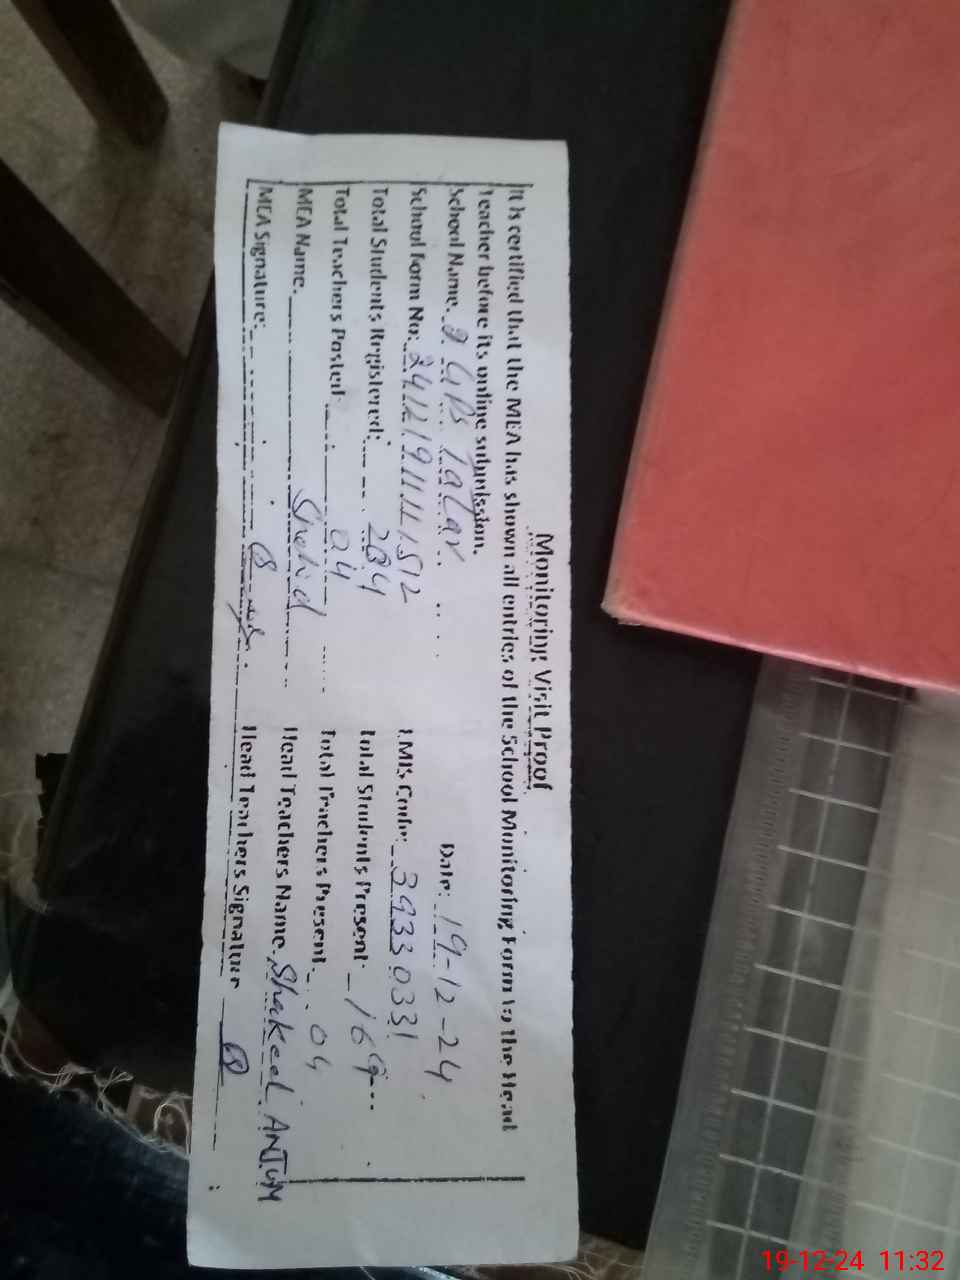 Monitoring Visit Proof
It is certified that the MEA has shown all entries of the School Monitoring Form to the Head
Teacher before its online submission.
School Name. GPS Tatar Date: 19-12-24
School Form No: EMIS Code: 39330331
Total Students Registered: 284 Total Students Present 169
Total Teachers Posted: 04 Total Teachers Present 04
MEA Name. Shahid Head Teachers Name Shakeel ANJUM
MEA Signature: Head Teachers Signature
19-12-24 11:32